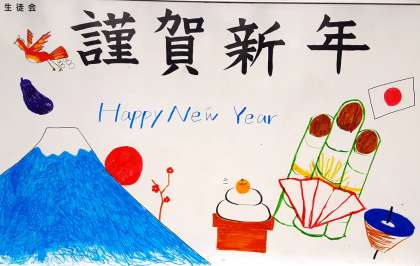 生徒会
謹賀新年
Happy New Year